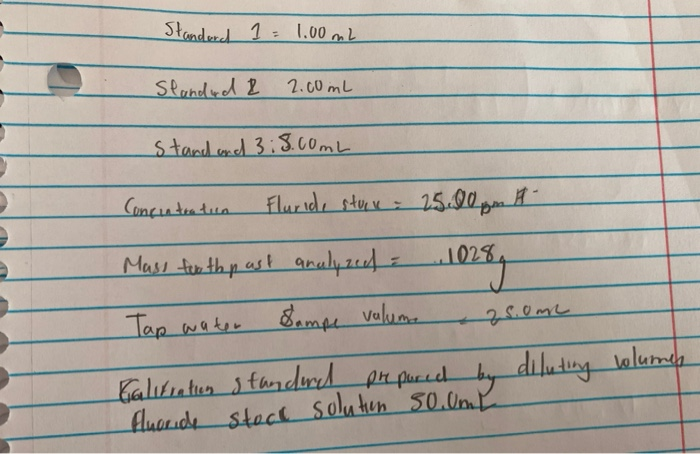 Standard 1 = 1.00 mL
Standard 2 2.00 mL
Standard 3 : 8.00mL
Concintration Fluride stock = 25.00 ppm F-
Mass toothpast analyzed = .1028g
Tap water Sampe volume = 25.0mL
Calibration standard prepared by diluting volumes
fluoride stock solution 50.0mL